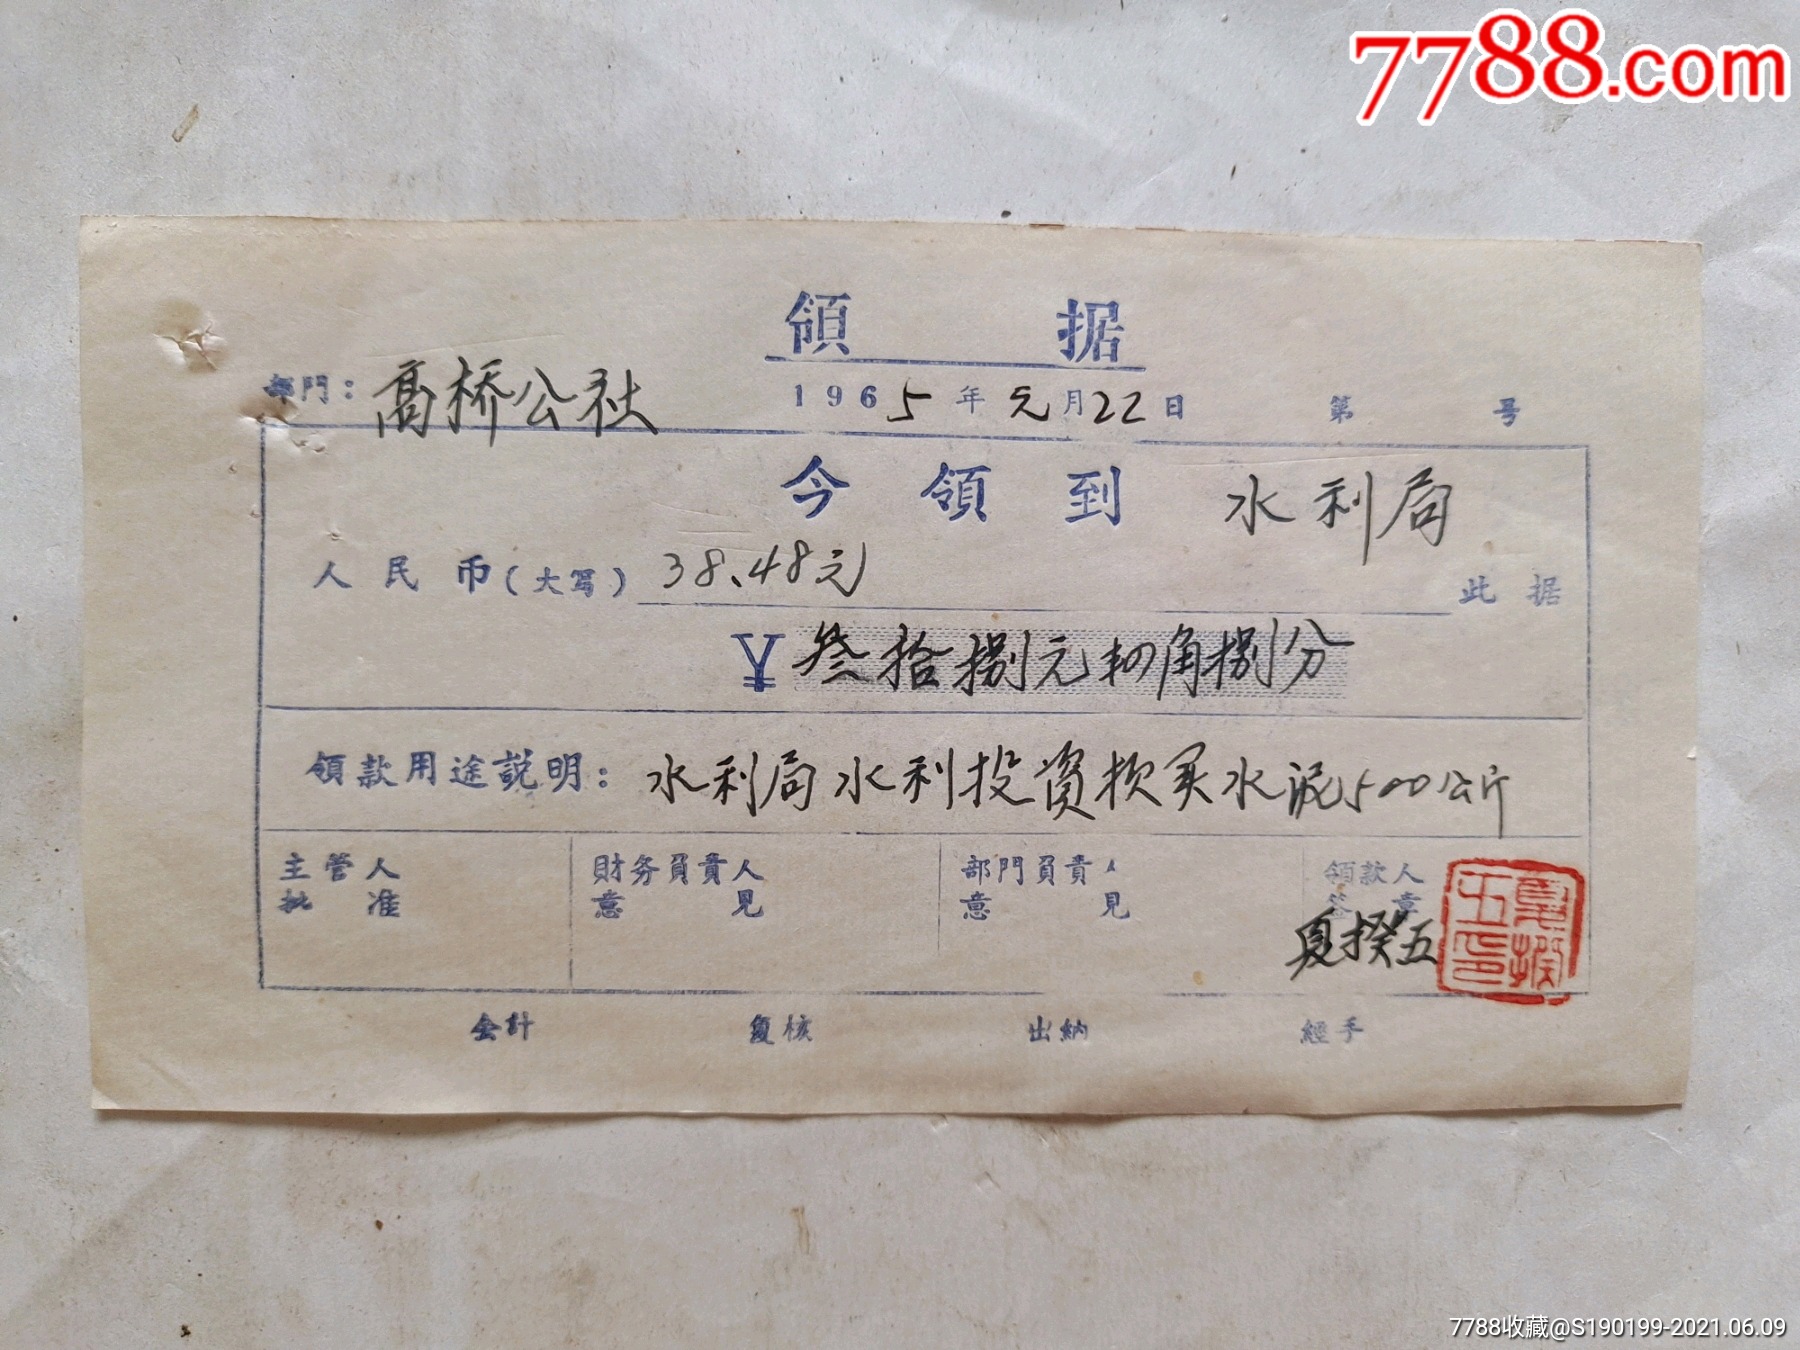 7788.com
領 据
部門：高桥公社 1965年元月22日 第 号
今領到 水利局
人民币(大写) 38.48元 此据
¥ 叁拾捌元肆角捌分
領款用途説明：水利局水利投資款买水泥500公斤
主管人批准 財务負責人意見 部門負責人意見 領款人签章
夏揆五
夏揆五印
会計 复核 出納 經手
7788收藏@S190199-2021.06.09